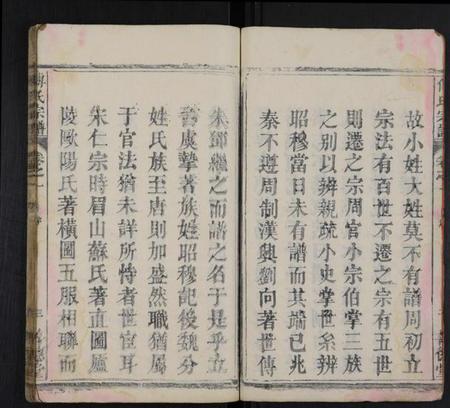 故小姓大姓莫不有譜周初立
宗法有百世不遷之宗有五世
則遷之宗周官小宗伯掌三族
之别以辨親疏小史掌世系辨
昭穆當日未有譜而其端已兆
秦不遵周制漢興劉向著世傳
朱鄧繼之而譜之名于是乎立
晉虞摯著族姓昭穆記後魏分
姓氏族至唐則加盛然職猶屬
于官法猶未詳所恃者世宦耳
宋仁宗時眉山蘇氏著直圖廬
陵歐陽氏著橫圖五服相聯而
氏宗譜
卷之一